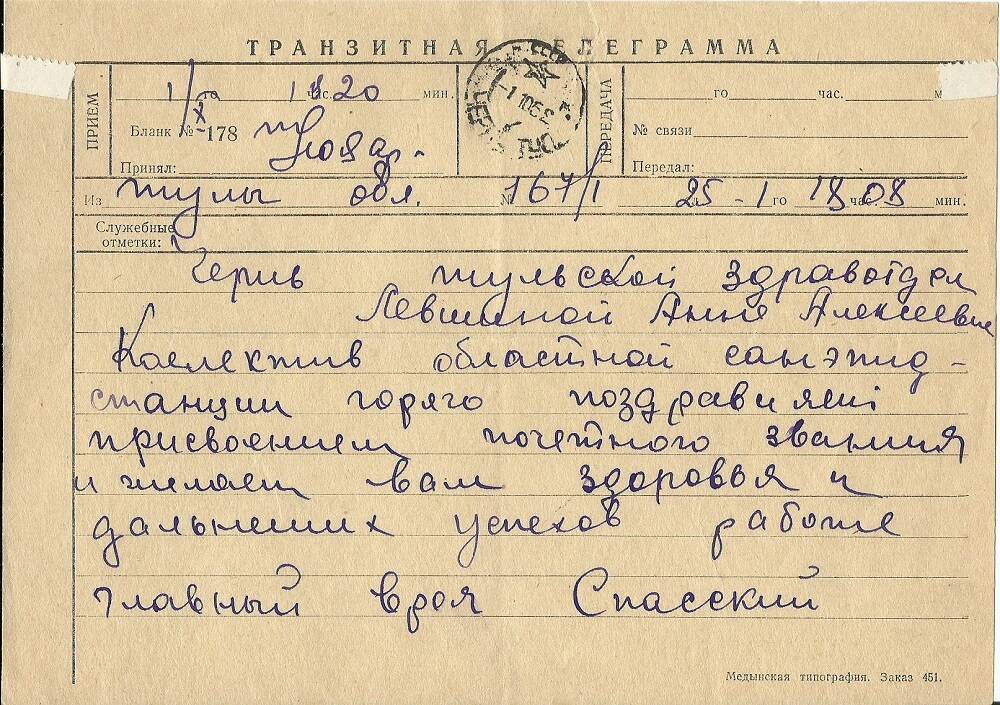 ТРАНЗИТНАЯ ТЕЛЕГРАММА
ПРИЕМ
1/X го 18 час. 20 мин.
Бланк № -178
Принял:
ПЕРЕДАЧА
го час. м
№ связи
Передал:
Из Тулы обл. № 167/1 25 -1 го 18 час. 08 мин.
Служебные
отметки:
Черив тульской здравотдел
Левшиной Анне Алексеевне
Коелектив областной санэпид-
станции горяго поздравияет
присвоением почетного звания
и желает вам здоровья и
дальнеших успехов работе
главный врая Спасский
Медынская типография. Заказ 451.